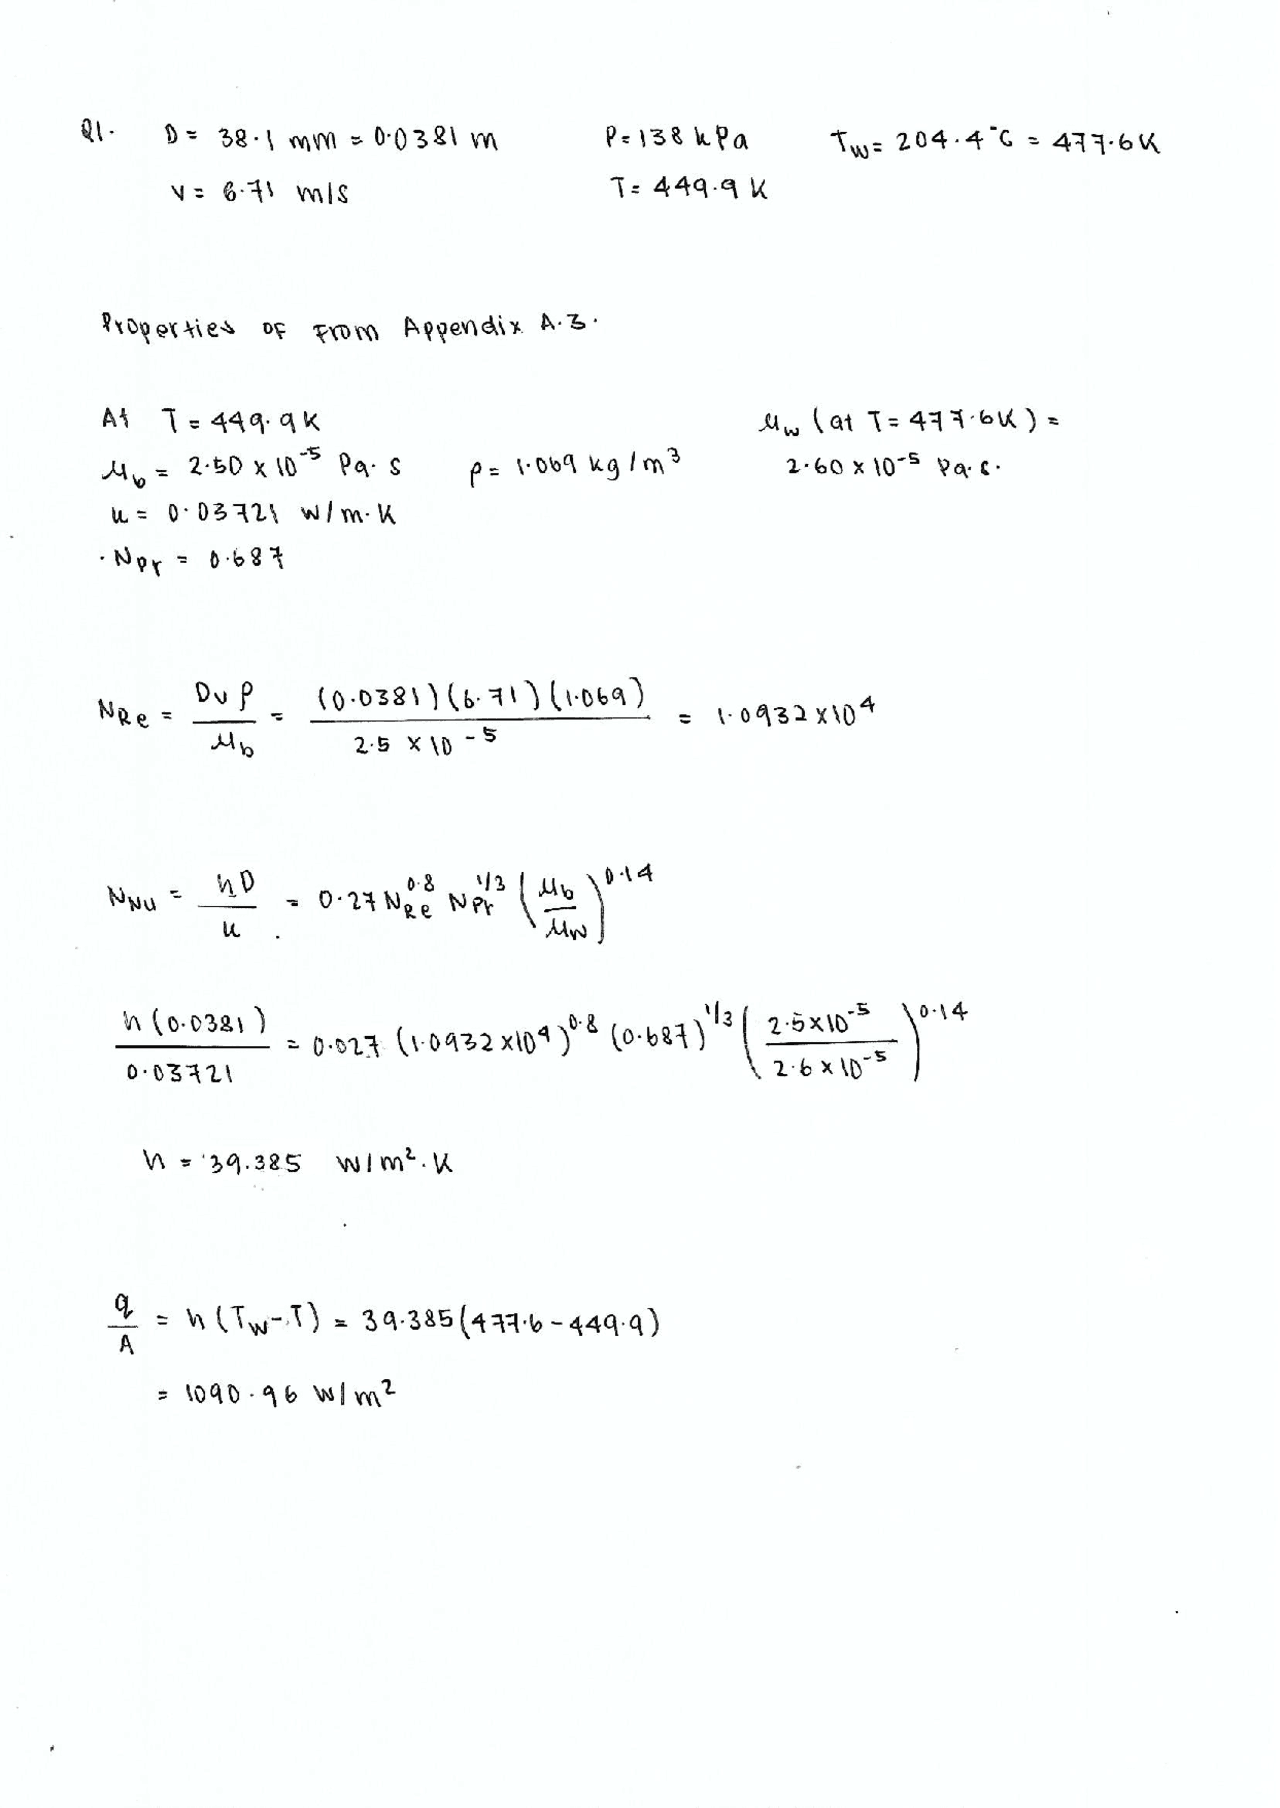 Q1. D = 38.1 mm = 0.0381 m P = 138 kPa Tw = 204.4°C = 477.6K
v = 6.71 m/s T = 449.9 K
Properties of From Appendix A.3.
At T = 449.9K μw (at T = 477.6K) =
μb = 2.50 x 10^-5 Pa.s ρ = 1.069 kg/m^3 2.60 x 10^-5 Pa.s.
k = 0.03721 W/m.K
.NPr = 0.687
NRe = Dvρ/μb = (0.0381)(6.71)(1.069)/2.5 x 10^-5 = 1.0932 x 10^4
NNu = hD/k = 0.27 NRe^0.8 NPr^1/3 (μb/μw)^0.14
h(0.0381)/0.03721 = 0.027 (1.0932 x 10^4)^0.8 (0.687)^1/3 (2.5x10^-5/2.6x10^-5)^0.14
h = 39.385 W/m^2.K
q/A = h(Tw-T) = 39.385(477.6-449.9)
= 1090.96 W/m^2